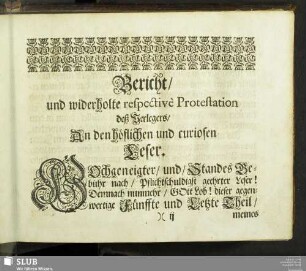 Bericht/
und widerholte respective Protestation
deß Verlegers/
An den höflichen und curiosen
Leser.
HOchgeneigter/ und/ Standes Ge-
bühr nach/ Pflichtschuldigst geehrter Leser!
Demnach nunmehr/ GOtt Lob! dieser gegen-
wertige Fünffte und Letzte Theil/
)( ij
meines
SLUB
Wir führen Wissen.